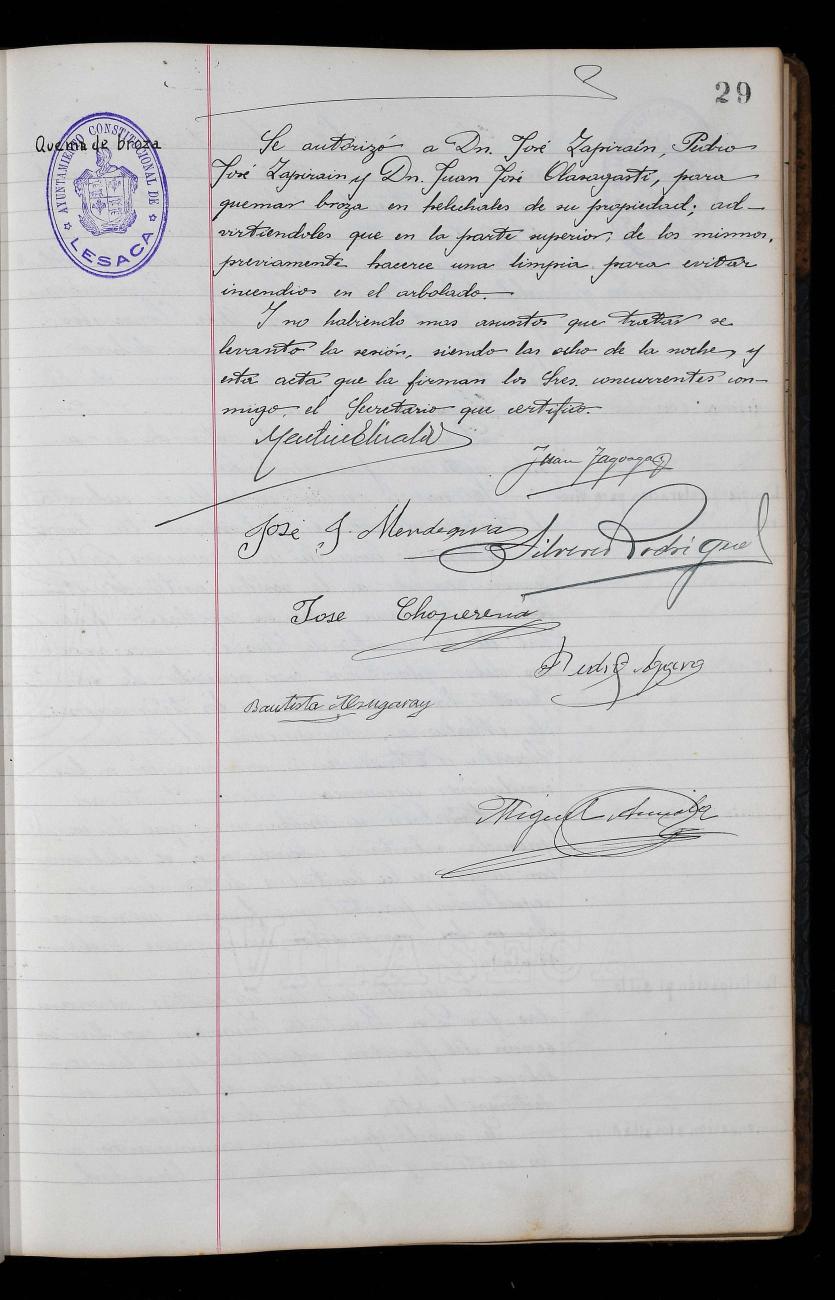 29
Quema de broza
AYUNTAMIENTO CONSTITUCIONAL DE
LESACA
Se autorizó a Dn. José Zapirain, Pedro
José Zapirain y Dn. Juan José Olasagasti, para
quemar broza en helechales de su propiedad; ad-
virtiendoles que en la parte superior, de los mismos,
previamente hacerce una limpia para evitar
incendios en el arbolado.
Y no habiendo mas asuntos que tratar se
levantó la sesión, siendo las ocho de la noche, y
esta acta que la firman los Sres. concurrentes con-
migo, el Secretario que certifico.
Juan
José J. Mendeguia
Silverio Rodriguez
Jose Choperena
Pedro
Bautista
Miguel